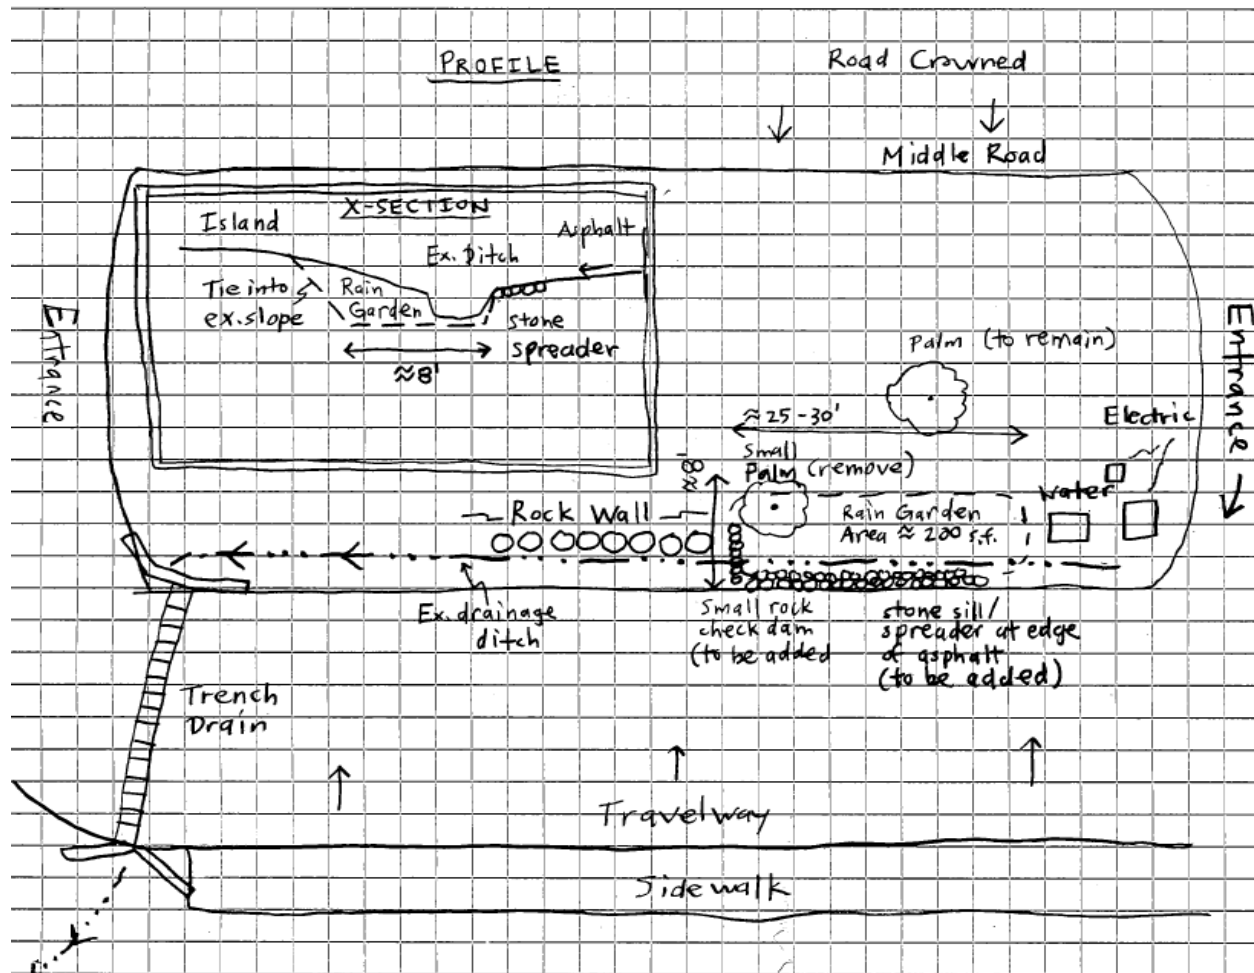 PROFILE
Road Crowned
Middle Road
X-SECTION
Island
Asphalt
Ex. Ditch
Tie into
ex. slope
Rain
Garden
stone
spreader
≈8'
Entrance
Entrance
Palm (to remain)
≈25-30'
Electric
Small
Palm (remove)
≈8'
Water
Rock Wall
Rain Garden
Area ≈ 200 s.f.
Ex. drainage
ditch
Small rock
check dam
(to be added
stone sill/
spreader at edge
of asphalt
(to be added)
Trench
Drain
Travelway
Sidewalk